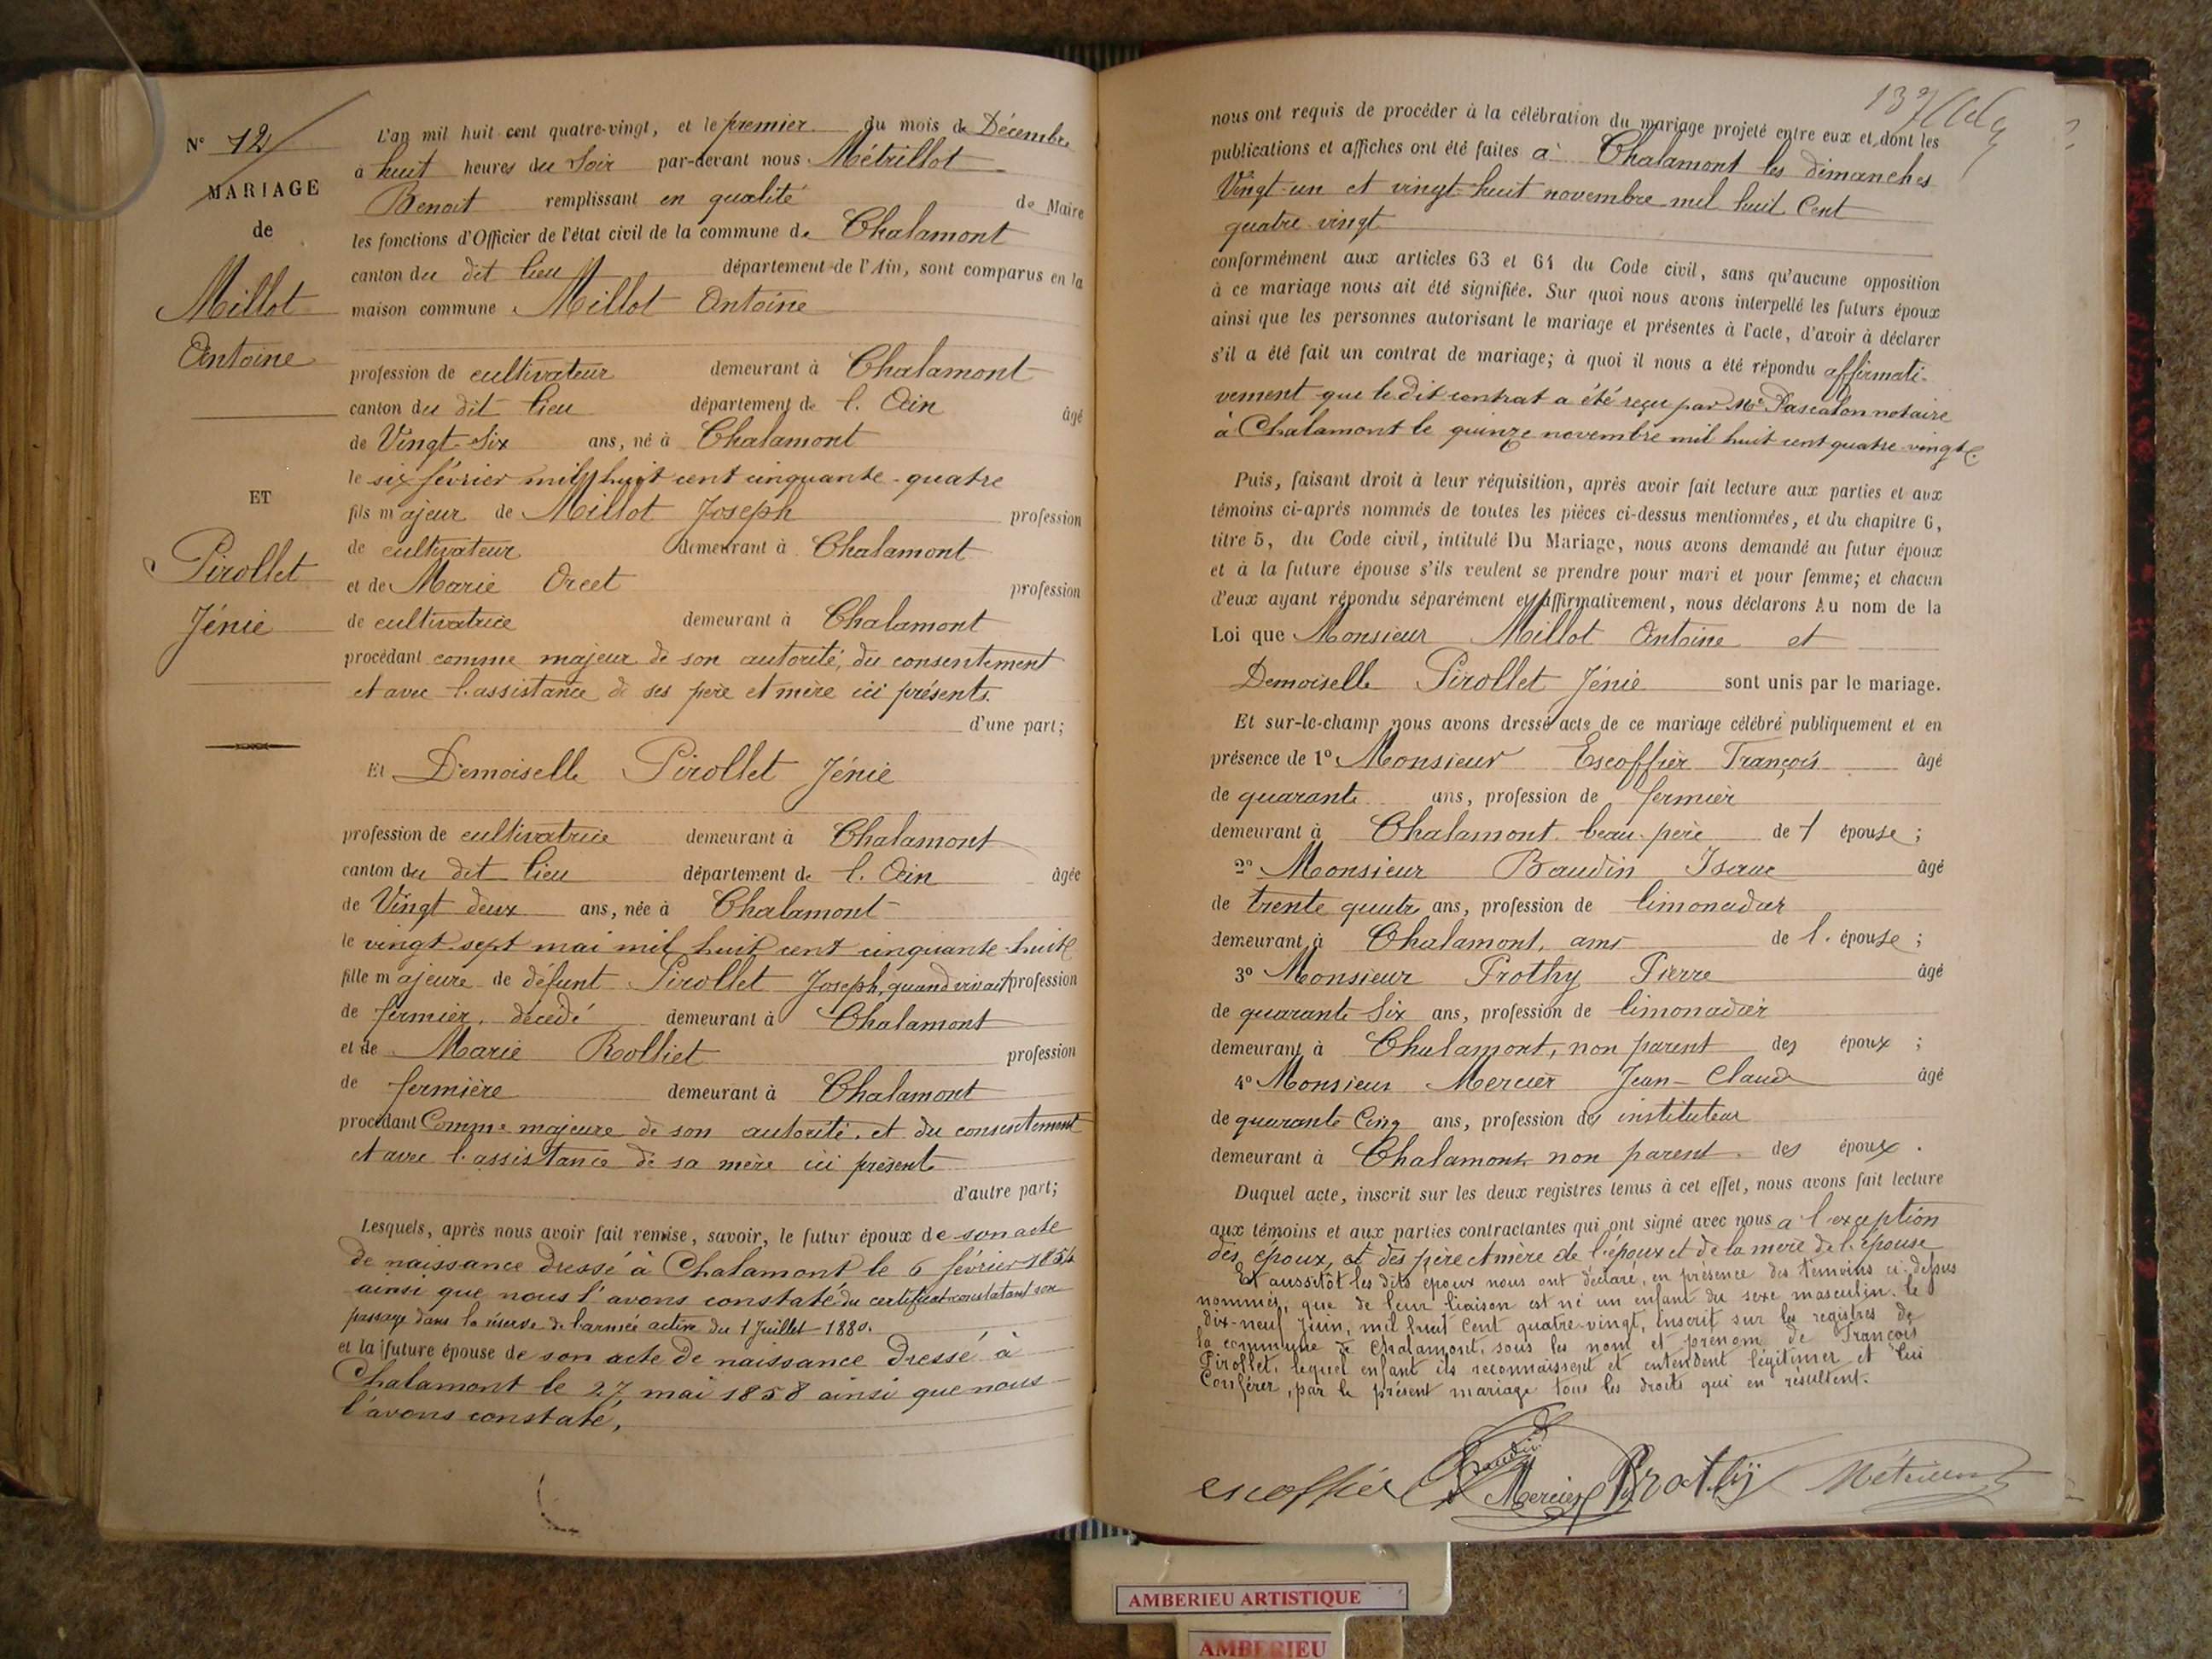 N° 12
MARIAGE
de
Millot
Antoine
ET
Pirollet
Jénie
L'an mil huit cent quatre-vingt, et le premier du mois de Décembre
à huit heures du Soir par-devant nous Métrillot
Benoit remplissant en qualité de Maire
les fonctions d'Officier de l'état civil de la commune de Chalamont
canton du dit lieu département de l'Ain, sont comparus en la
maison commune Millot Antoine
profession de cultivateur demeurant à Chalamont
canton du dit lieu département de l'Ain âgé
de Vingt-Six ans, né à Chalamont
le six février mil huit cent cinquante-quatre
fils majeur de Millot Joseph profession
de cultivateur demeurant à Chalamont
et de Marie Orcet profession
de cultivatrice demeurant à Chalamont
procédant comme majeur de son autorité, du consentement
et avec l'assistance de ses père et mère ici présents.
d'une part;
Et Demoiselle Pirollet Jénie
profession de cultivatrice demeurant à Chalamont
canton du dit lieu département de l'Ain âgée
de Vingt deux ans, née à Chalamont
le vingt-sept mai mil huit cent cinquante-huit
fille majeure de défunt Pirollet Joseph, quand vivait profession
de fermier, décédé demeurant à Chalamont
et de Marie Rolliet profession
de fermière demeurant à Chalamont
procédant Comme majeure de son autorité, et du consentement
et avec l'assistance de sa mère ici présente
d'autre part;
Lesquels, après nous avoir fait remise, savoir, le futur époux de son acte
de naissance dressé à Chalamont le 6 février 1854
ainsi que nous l'avons constaté du certificat constatant son
passage dans la réserve de l'armée active du 1 Juillet 1880.
et la future épouse de son acte de naissance dressé à
Chalamont le 27 mai 1858 ainsi que nous
l'avons constaté,
137
nous ont requis de procéder à la célébration du mariage projeté entre eux et dont les
publications et affiches ont été faites à Chalamont les dimanches
Vingt-un et vingt-huit novembre mil huit Cent
quatre vingt
conformément aux articles 63 et 64 du Code civil, sans qu'aucune opposition
à ce mariage nous ait été signifiée. Sur quoi nous avons interpellé les futurs époux
ainsi que les personnes autorisant le mariage et présentes à l'acte, d'avoir à déclarer
s'il a été fait un contrat de mariage; à quoi il nous a été répondu affirmati-
vement que le dit contrat a été reçu par Me Pascalon notaire
à Chalamont le quinze novembre mil huit cent quatre-vingt.
Puis, faisant droit à leur réquisition, après avoir fait lecture aux parties et aux
témoins ci-après nommés de toutes les pièces ci-dessus mentionnées, et du chapitre 6,
titre 5, du Code civil, intitulé Du Mariage, nous avons demandé au futur époux
et à la future épouse s'ils veulent se prendre pour mari et pour femme; et chacun
d'eux ayant répondu séparément et affirmativement, nous déclarons Au nom de la
Loi que Monsieur Millot Antoine et
Demoiselle Pirollet Jénie sont unis par le mariage.
Et sur-le-champ nous avons dressé acte de ce mariage célébré publiquement et en
présence de 1° Monsieur Escoffier François âgé
de quarante ans, profession de fermier
demeurant à Chalamont beau-père de l'épouse;
2° Monsieur Baudin Isaac âgé
de trente quatre ans, profession de limonadier
demeurant à Chalamont, ami de l'épouse;
3° Monsieur Prothy Pierre âgé
de quarante Six ans, profession de limonadier
demeurant à Chalamont, non parent des époux;
4° Monsieur Mercier Jean-Claude âgé
de quarante Cinq ans, profession des instituteur
demeurant à Chalamont non parent des époux.
Duquel acte, inscrit sur les deux registres tenus à cet effet, nous avons fait lecture
aux témoins et aux parties contractantes qui ont signé avec nous à l'exception
des époux, et des père et mère de l'époux et de la mère de l'épouse
Et aussitôt les dits époux nous ont déclaré, en présence des témoins ci-dessus
nommés, que de leur liaison est né un enfant du sexe masculin, le
dix-neuf Juin, mil huit Cent quatre-vingt, inscrit sur les registres de
la commune de Chalamont, sous les nom et prénom de François
Pirollet, lequel enfant ils reconnaissent et entendent légitimer et lui
Conférer, par le présent mariage tous les droits qui en résultent.
escoffier Baudin Mercier Prothy Métrillot
AMBERIEU ARTISTIQUE
AMBERIEU